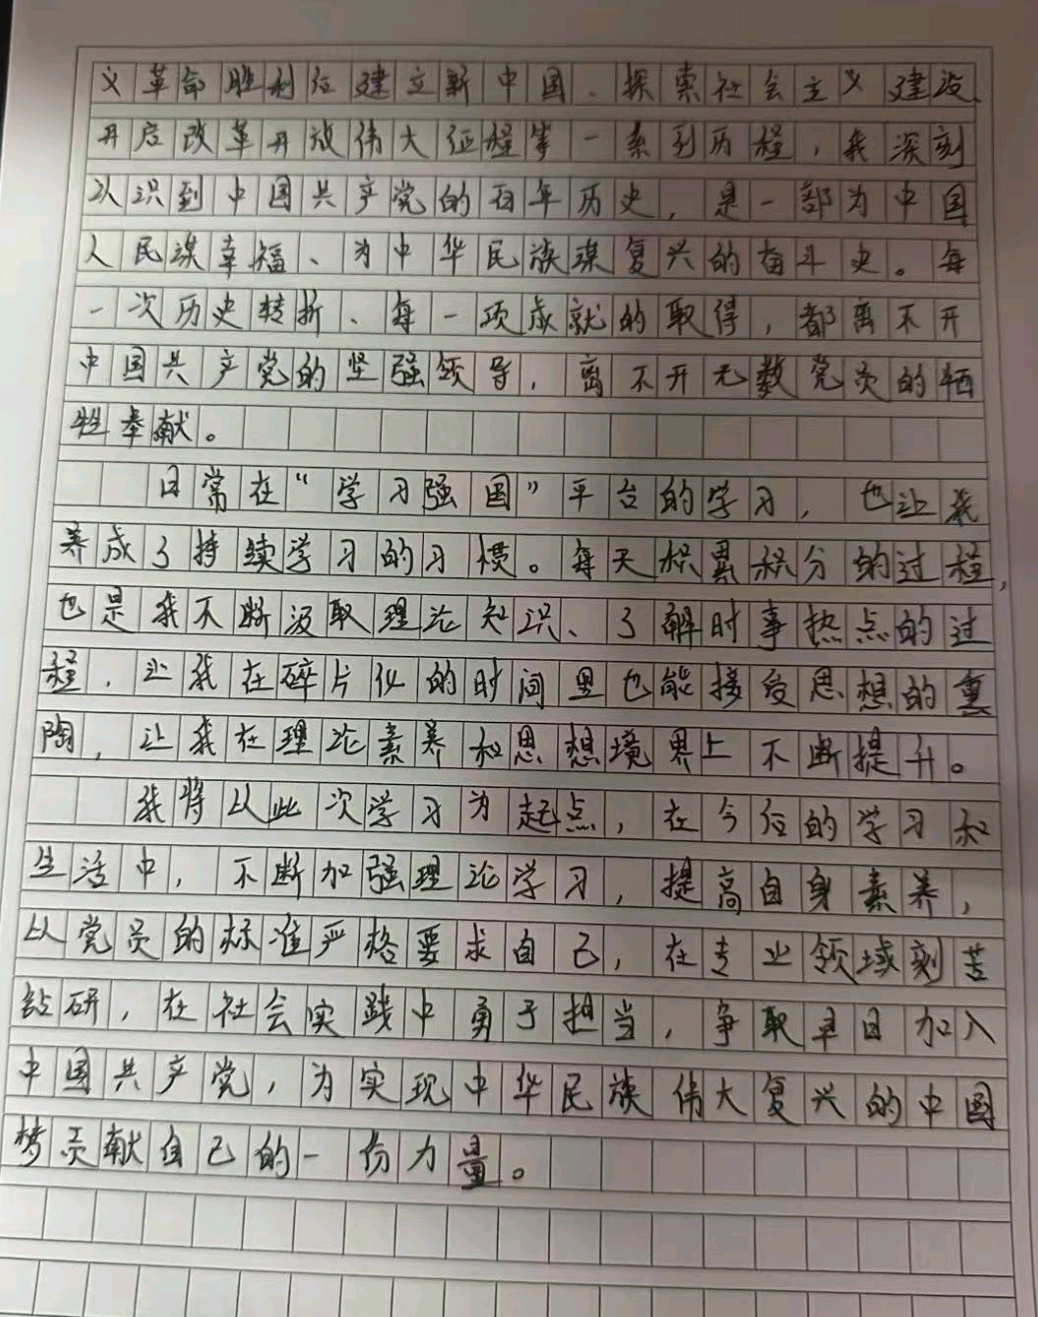 义革命胜利后建立新中国、探索社会主义建设、
开启改革开放伟大征程等一系列历程，我深刻
认识到中国共产党的百年历史，是一部为中国
人民谋幸福、为中华民族谋复兴的奋斗史。每
一次历史转折、每一项成就的取得，都离不开
中国共产党的坚强领导，离不开无数党员的牺
牲奉献。
日常在“学习强国”平台的学习，也让我
养成了持续学习的习惯。每天积累积分的过程，
也是我不断汲取理论知识、了解时事热点的过
程，让我在碎片化的时间里也能接受思想的熏
陶，让我在理论素养和思想境界上不断提升。
我将以此次学习为起点，在今后的学习和
生活中，不断加强理论学习，提高自身素养，
以党员的标准严格要求自己，在专业领域刻苦
钻研，在社会实践中勇于担当，争取早日加入
中国共产党，为实现中华民族伟大复兴的中国
梦贡献自己的一份力量。